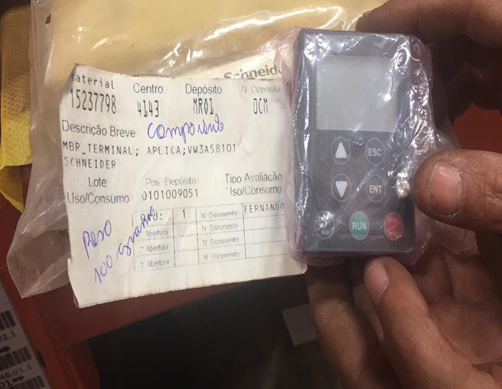 Schneider
Material Centro Depósito N. Depósito
15237798 4143 MR01 DCM
Descrição Breve componente
MBR_TERMINAL; APLICA;VW3A58101
SCHNEIDER
Lote Pos. Depósito Tipo Avaliação
Uso/Consumo 0101009051 Uso/Consumo
1 N Documento FERNANDO
Abertura N Documento
Abertura N Documento
Abertura N Documento
Peso
100 gramas
ESC
ENT
RUN